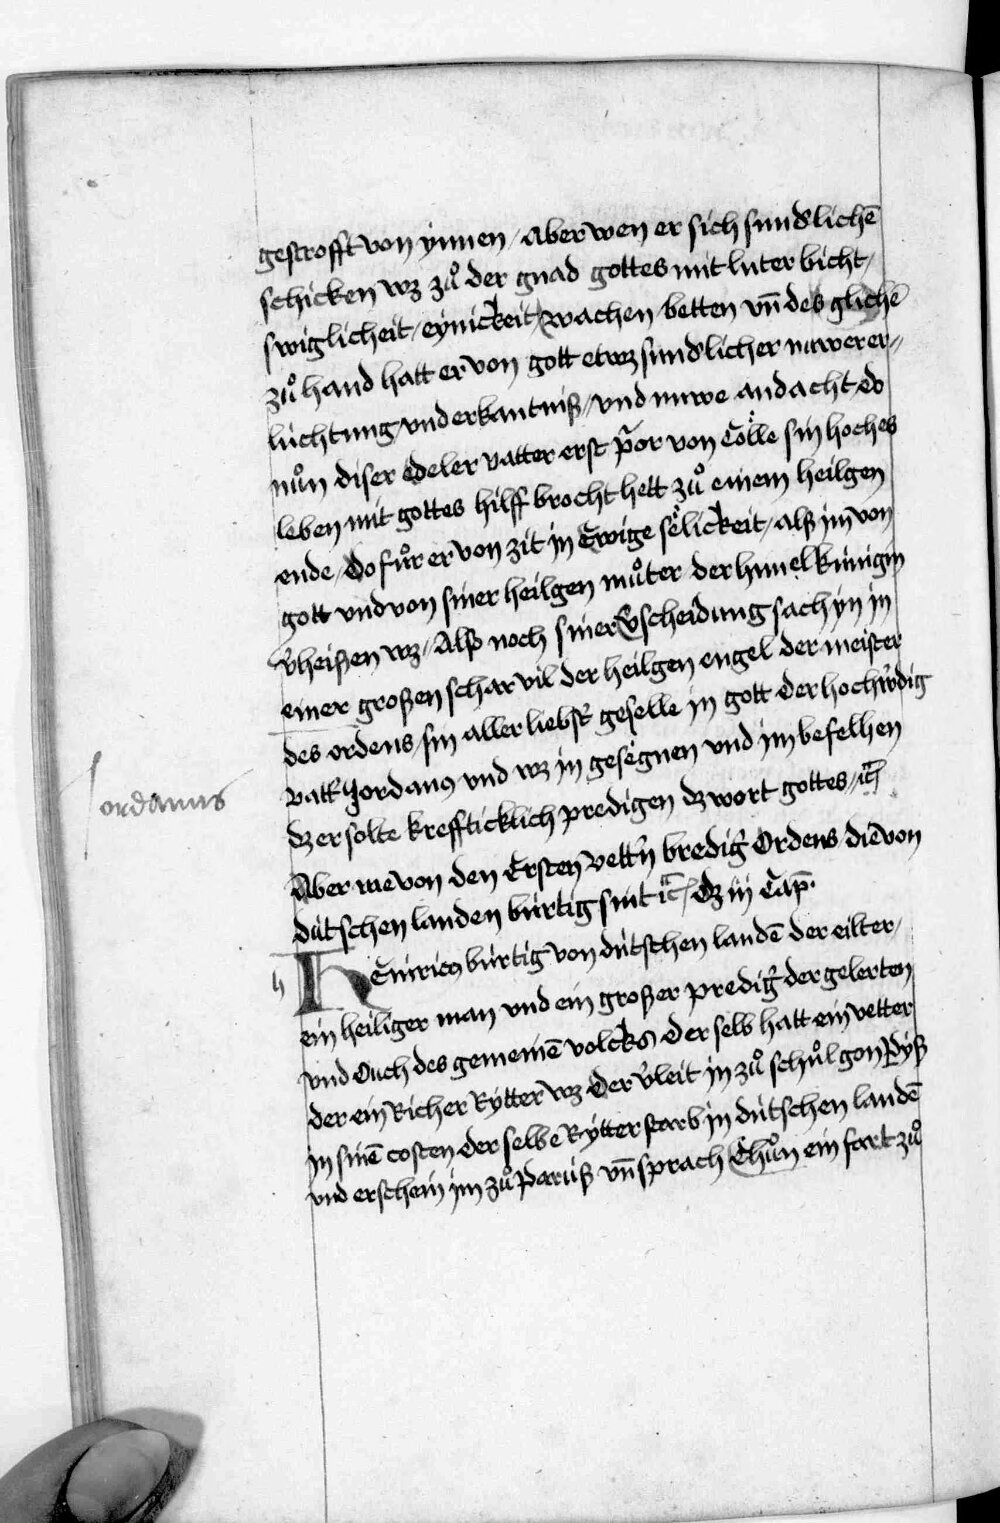 gestrofft von ynnen / Aber wen er sich sund'lichē
schicken wz zuͦ der gnad gottes mit luter bicht /
swiglicheit / eynickeit / wachen / betten vn̄ des glichē
zuͦ hand hatt er von gott etwz sund'licher nuwer er=
lúchtung vnd erkantniß / vnd nuwe andacht / do
nuͦn diser edeler vatter erst p̄or von Cölle sin hoches
leben mit gottes hilff brocht hett zuͦ einem heilgen
ende / Do fuͦr er von zit in Ewige sëlickeit / alß im von
gott vnd von siner heilgen muͦter der himelkúnigin
v'heißen wz / Alß noch siner v'scheidung sach yn in
einer großen schar vil der heilgen engel der meister
des ordens / sin aller liebst' geselle in gott der hochwirdig
vatt' Jordanꝰ vnd wz in gesëgnen vnd im befelhen
dz er solte kreffticklich predigen dz wort gottes / ꝛc̄
Jordanus
Aber me von den Ersten vett'n bredig' Ordens / die von
dútschen landen búrtig sint ꝛc̄ / Dz iii Cap̄.
h
HEinricꝰ búrtig von dútschen landē der eilter /
ein heiliger man vnd ein großer predig' der gelerten
vnd Ouch des gemeinē volcks / Der selb hatt ein vetter
der ein Richer Rytter wz Der v'leit in zuͦ schuͦl gon Pariß
in sinē costen der selbe Rytter starb in dútschen landē
vnd erschein im zuͦ Pariiß vn̄ sprach Thuͦn ein fart zuͦ